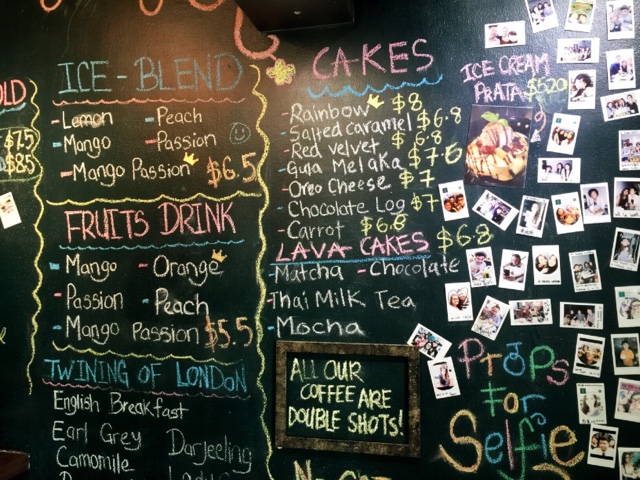 OLD
$7.5
$8.5
ICE-BLEND
-Lemon -Peach
-Mango -Passion
-Mango Passion $6.5
FRUITS DRINK
-Mango -Orange
-Passion -Peach
-Mango Passion $5.5
TWINING OF LONDON
English Breakfast
Earl Grey Darjeeling
Camomile
CAKES
-Rainbow $8
-Salted caramel $6.8
-Red velvet $6.8
-Gula Melaka $7.5
-Oreo Cheese $7
-Chocolate Log $7
-Carrot $6.8
LAVA CAKES $6.8
-Matcha -Chocolate
-Thai Milk Tea
-Mocha
ALL OUR
COFFEE ARE
DOUBLE SHOTS!
ICE CREAM
PRATA $5.20
Props
For
Selfie